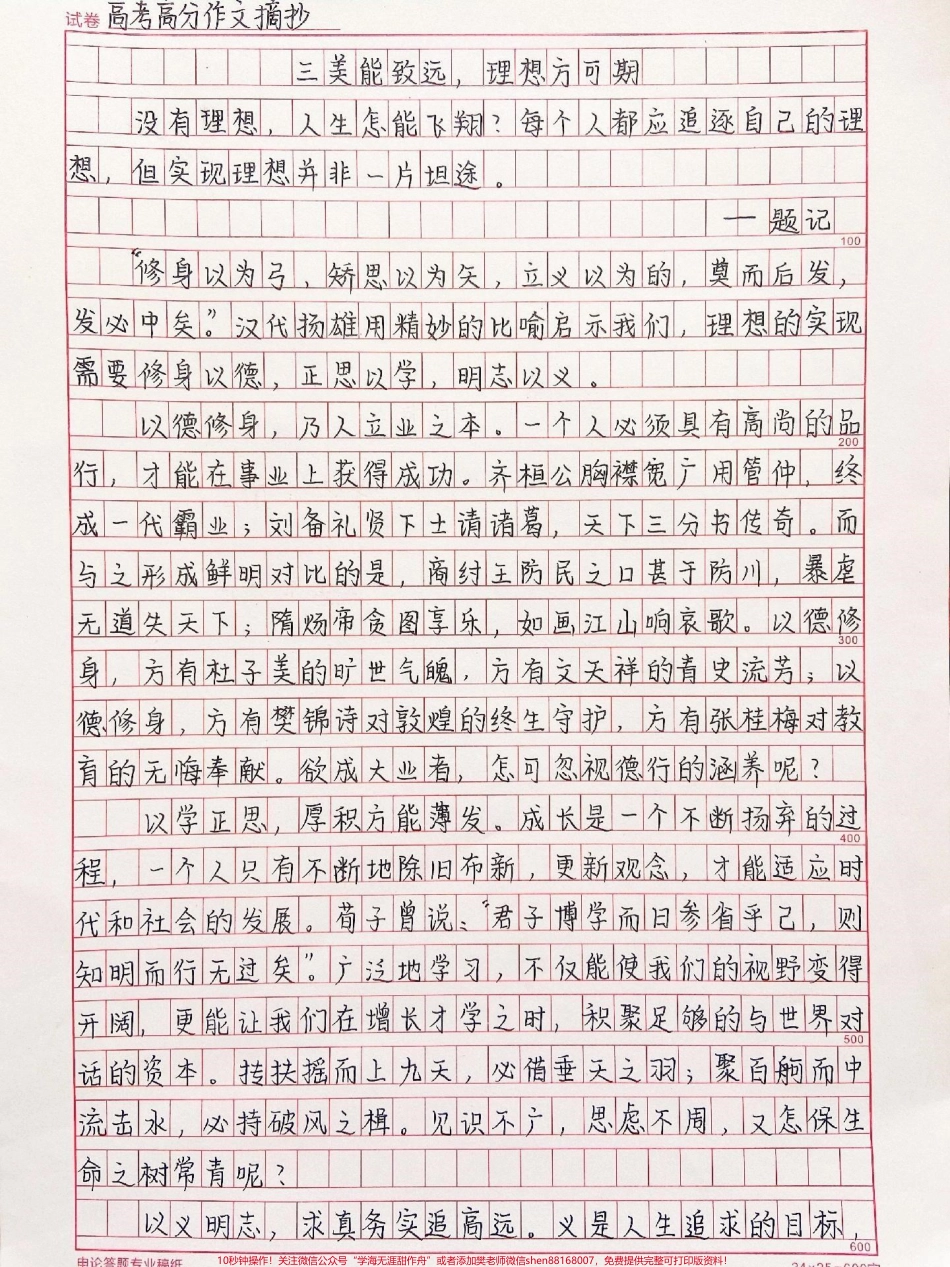 试卷 高考高分作文摘抄
三美能致远，理想方可期
没有理想，人生怎能飞翔？每个人都应追逐自己的理
想，但实现理想并非一片坦途。
一题记
100
“修身以为弓，矫思以为矢，立义以为的，奠而后发，
发必中矣。”汉代扬雄用精妙的比喻启示我们，理想的实现
需要修身以德，正思以学，明志以义。
以德修身，乃人立业之本。一个人必须具有高尚的品
200
行，才能在事业上获得成功。齐桓公胸襟宽广用管仲，终
成一代霸业；刘备礼贤下士请诸葛，天下三分书传奇。而
与之形成鲜明对比的是，商纣王防民之口甚于防川，暴虐
无道失天下；隋炀帝贪图享乐，如画江山响哀歌。以德修
300
身，方有杜子美的旷世气魄，方有文天祥的青史流芳；以
德修身，方有樊锦诗对敦煌的终生守护，方有张桂梅对教
育的无悔奉献。欲成大业者，怎可忽视德行的涵养呢？
以学正思，厚积方能薄发。成长是一个不断扬弃的过
400
程，一个人只有不断地除旧布新，更新观念，才能适应时
代和社会的发展。荀子曾说：“君子博学而日参省乎己，则
知明而行无过矣”。广泛地学习，不仅能使我们的视野变得
开阔，更能让我们在增长才学之时，积聚足够的与世界对
500
话的资本。抟扶摇而上九天，必借垂天之羽；聚百舸而中
流击水，必持破风之楫。见识不广，思虑不周，又怎保生
命之树常青呢？
以义明志，求真务实追高远。义是人生追求的目标，
600
申论答题专业稿纸
10秒钟操作！关注微信公众号“学海无涯甜作舟”或者添加樊老师微信shen88168007，免费提供完整可打印版资料！
24×25=600字